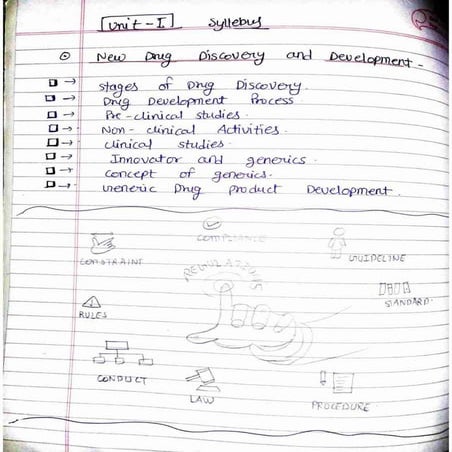 Unit - I Syllebus
New Drug Discovery and Development -
stages of Drug Discovery.
Drug Development Process
Pre-clinical studies.
Non-clinical Activities.
clinical studies.
Innovator and generics.
concept of generics.
Generic Drug product Development.
COMPLIANCE
CONSTRAINT
GUIDELINE
REGULATIONS
STANDARD
RULES
CONDUCT
LAW
PROCEDURE